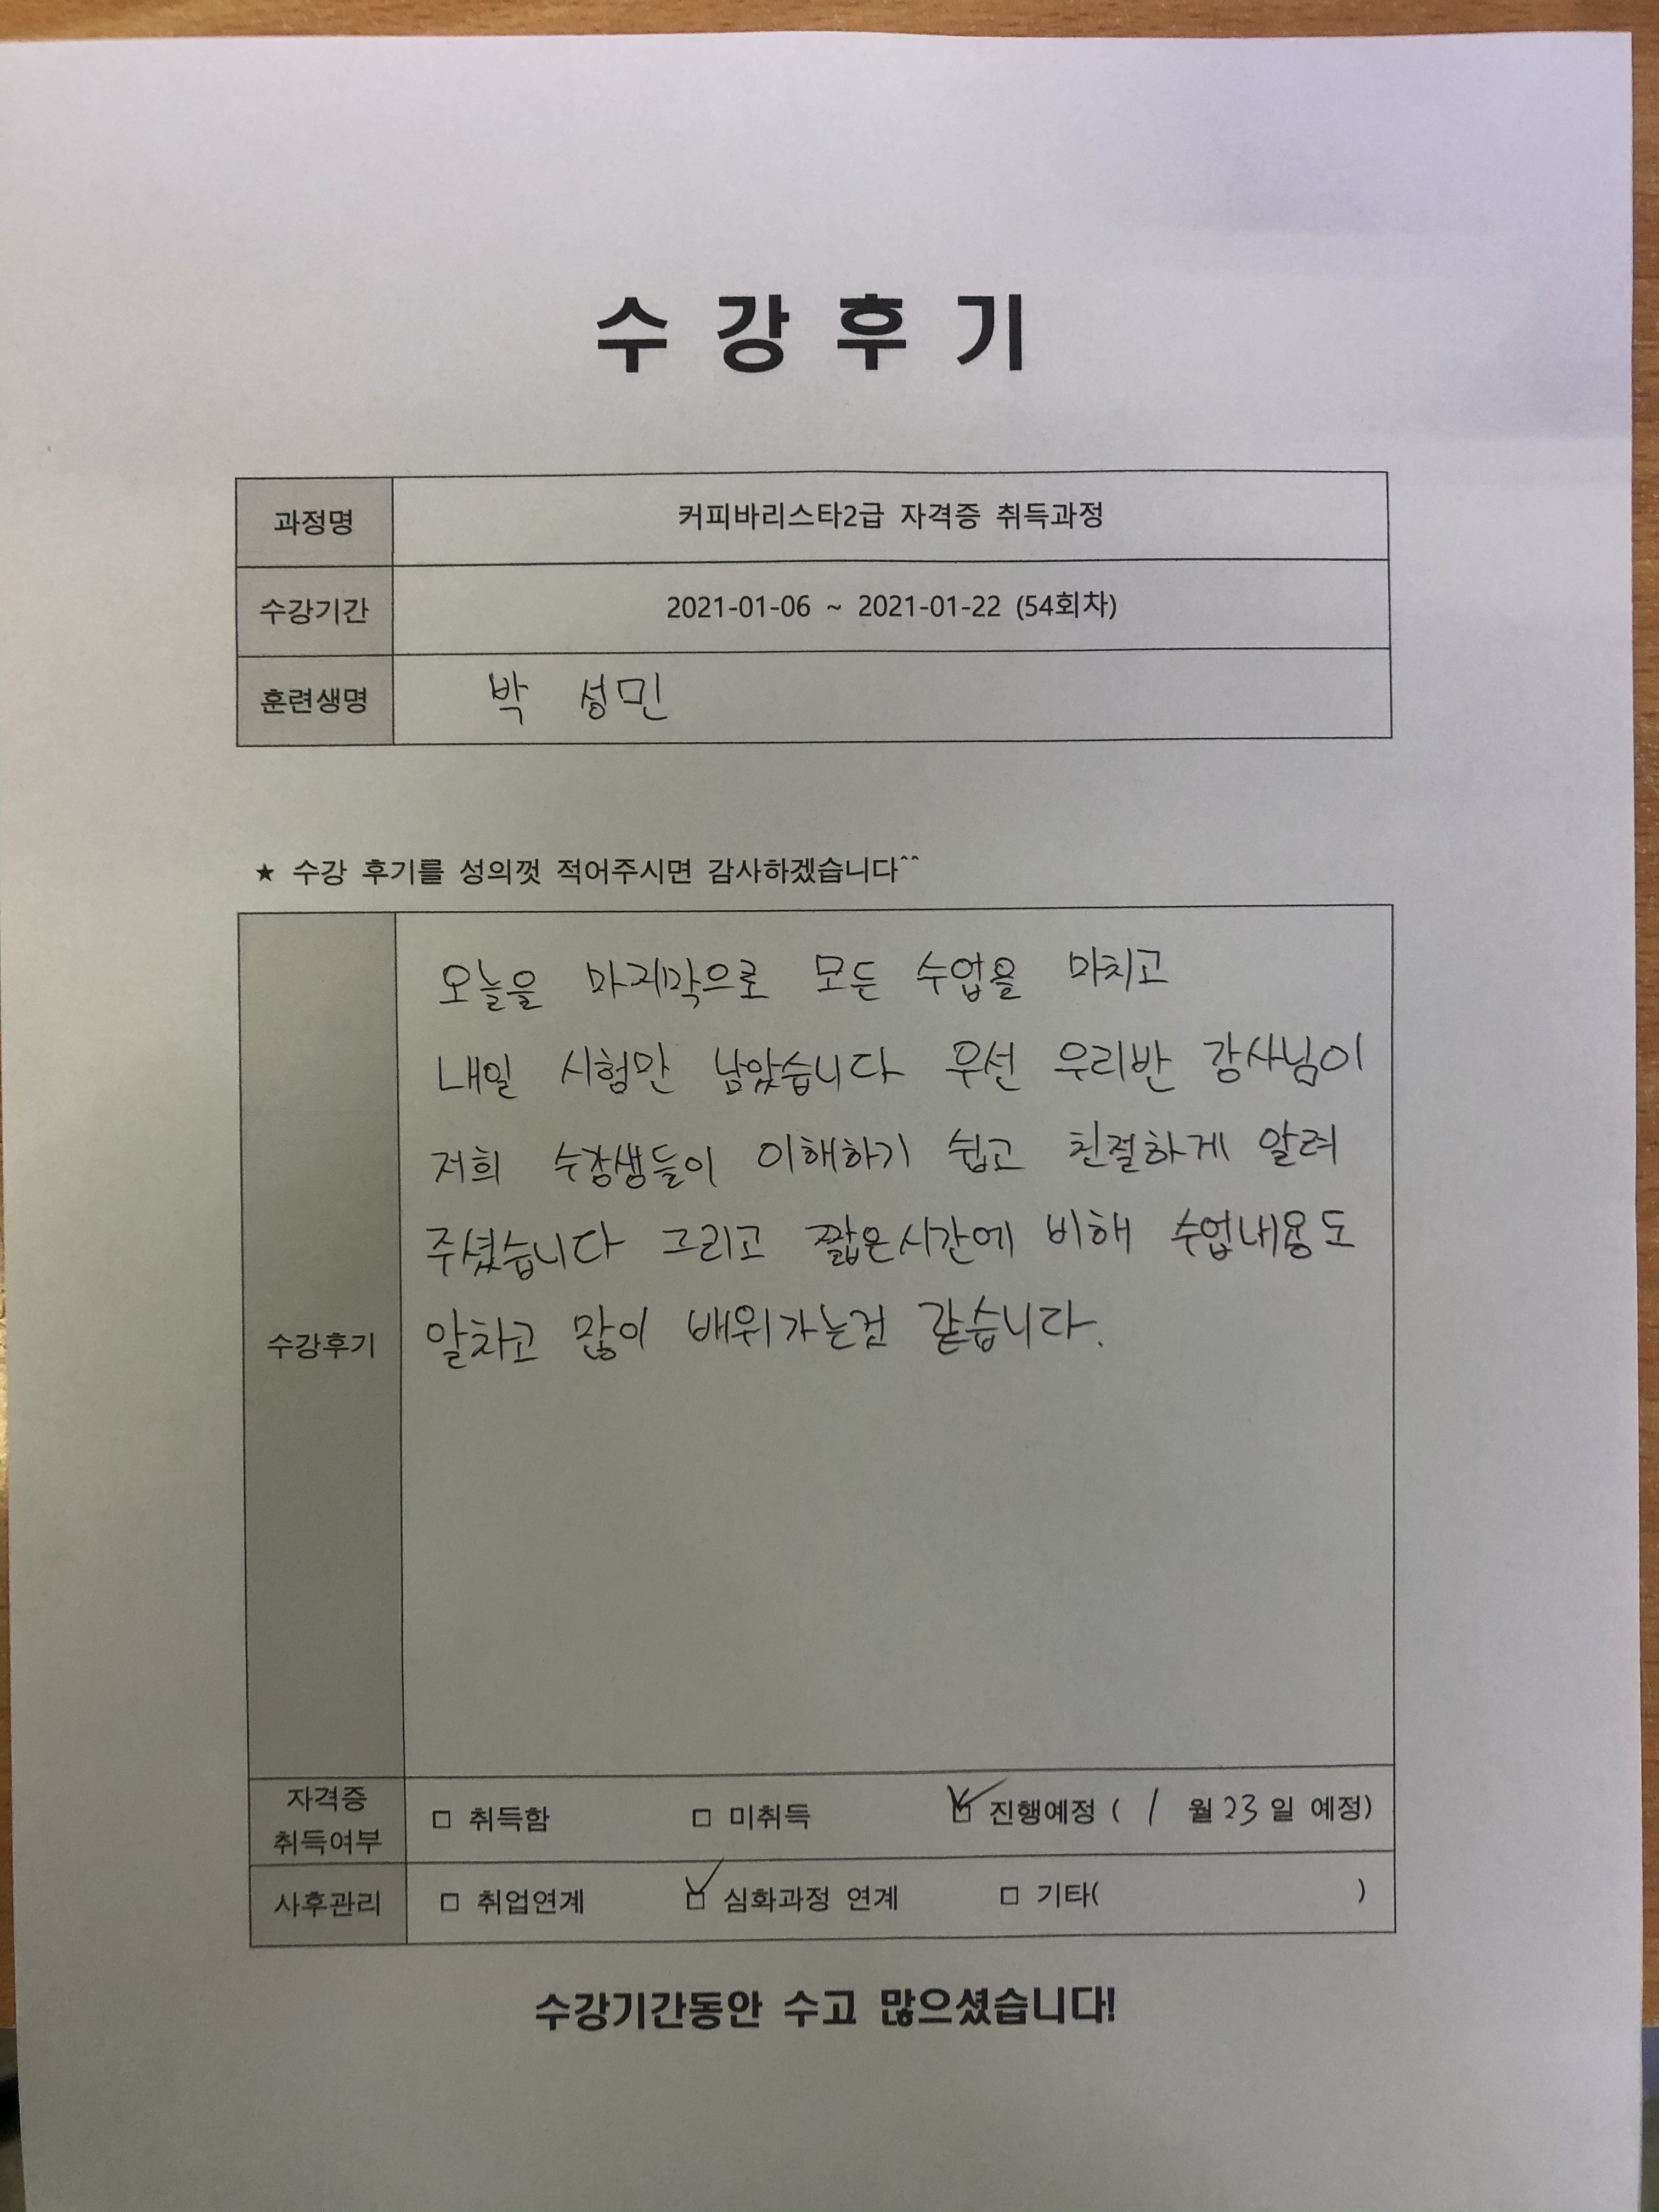 수강후기
과정명 커피바리스타2급 자격증 취득과정
수강기간 2021-01-06 ~ 2021-01-22 (54회차)
훈련생명 박 성민
★ 수강 후기를 성의껏 적어주시면 감사하겠습니다^^
오늘을 마지막으로 모든 수업을 마치고
내일 시험만 남았습니다 우선 우리반 강사님이
저희 수강생들이 이해하기 쉽고 친절하게 알려
주셨습니다 그리고 짧은시간에 비해 수업내용도
수강후기 알차고 많이 배워가는것 같습니다.
자격증
취득여부 □ 취득함 □ 미취득 ☑ 진행예정 ( 1 월 23 일 예정)
사후관리 □ 취업연계 ☑ 심화과정 연계 □ 기타( )
수강기간동안 수고 많으셨습니다!